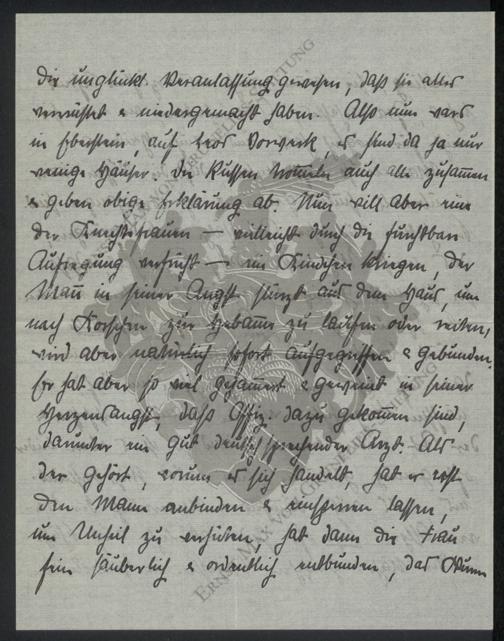 die unglückl. Veranlassung gewesen, daß sie alles
verwüstet & niedergemacht haben. Also nun war's
in Eberstein auf Vorwerk, es sind da ja nur
wenige Häuser. Die Russen kommen auch alle zusammen
& geben obige Erklärung ab. Nun will aber eine
der Knechtsfrauen — vielleicht durch die furchtbare
Aufregung verfrüht — ein Kindchen kriegen, der
Mann in seiner Angst stürzt aus dem Haus, um
nach Korschen zur Hebamme zu laufen oder reiten,
wird aber natürlich sofort aufgegriffen & gebunden.
Er hat aber so viel gejammert & geweint in seiner
Herzensangst, daß Offiz. dazu gekommen sind,
darunter ein gut deutsch sprechender Arzt. Als
der gehört, worum es sich handelt, hat er erst
den Mann anbinden & einsperren lassen,
um Unheil zu verhüten, hat dann die Frau
fein säuberlich & ordentlich entbunden, das
ERNST MAX VON